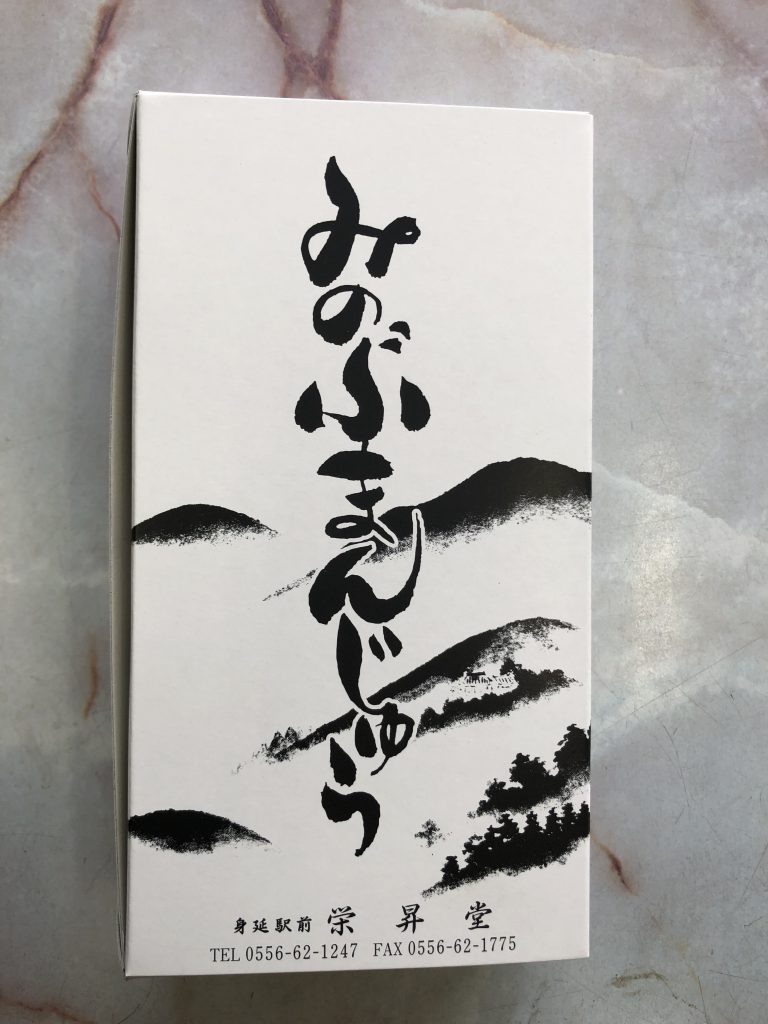 みのぶまんじゅう
身延駅前 栄昇堂
TEL 0556-62-1247 FAX 0556-62-1775